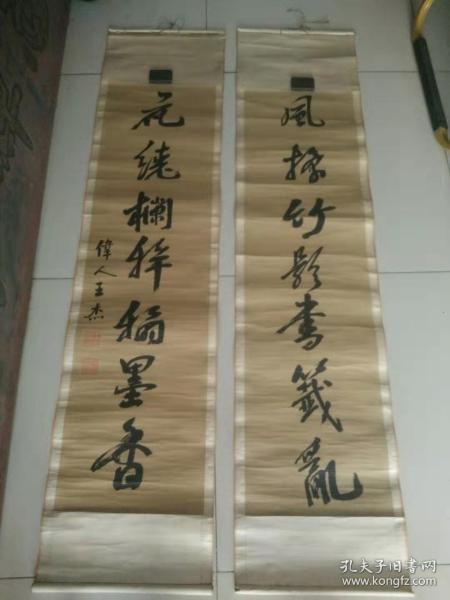 風搖竹影書籤亂
花繞欄墨香
偉人王杰
孔夫子旧书网
www.kongfz.com